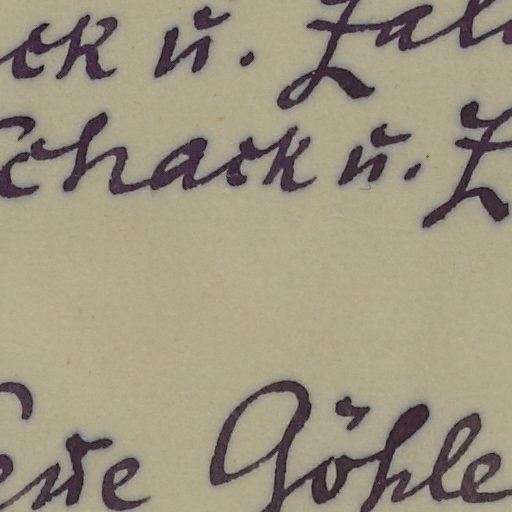 ck u. Zal
Schack u. Z
ene Göhle